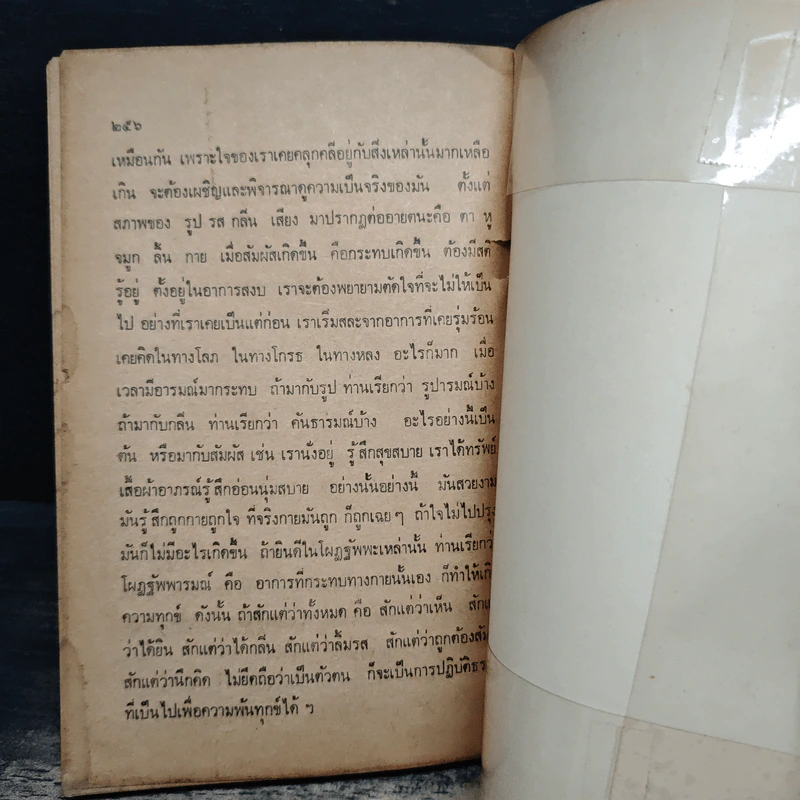 ๒๕๖
เหมือนกัน เพราะใจของเราเคยคลุกคลีอยู่กับสิ่งเหล่านั้นมากเหลือ
เกิน จะต้องเผชิญและพิจารณาดูความเป็นจริงของมัน ตั้งแต่
สภาพของ รูป รส กลิ่น เสียง มาปรากฏต่ออายตนะคือ ตา หู
จมูก ลิ้น กาย เมื่อสัมผัสเกิดขึ้น คือกระทบเกิดขึ้น ต้องมีสติ
รู้อยู่ ตั้งอยู่ในอาการสงบ เราจะต้องพยายามตัดใจที่จะไม่ให้เป็น
ไป อย่างที่เราเคยเป็นแต่ก่อน เราเริ่มสละจากอาการที่เคยรุ่มร้อน
เคยคิดในทางโลภ ในทางโกรธ ในทางหลง อะไรก็มาก เมื่อ
เวลามีอารมณ์มากระทบ ถ้ามากับรูป ท่านเรียกว่า รูปารมณ์บ้าง
ถ้ามากับกลิ่น ท่านเรียกว่า คันธารมณ์บ้าง อะไรอย่างนี้เป็น
ต้น หรือมากับสัมผัส เช่น เรานั่งอยู่ รู้สึกสุขสบาย เราได้ทรัพย์
เสื้อผ้าอาภรณ์รู้สึกอ่อนนุ่มสบาย อย่างนั้นอย่างนี้ มันสวยงาม
มันรู้สึกถูกกายถูกใจ ที่จริงกายมันถูก ก็ถูกเฉยๆ ถ้าใจไม่ไปปรุง
มันก็ไม่มีอะไรเกิดขึ้น ถ้ายินดีในโผฏฐัพพะเหล่านั้น ท่านเรียกว่
โผฏฐัพพารมณ์ คือ อาการที่กระทบทางกายนั้นเอง ก็ทำให้เกิ
ความทุกข์ ดังนั้น ถ้าสักแต่ว่าทั้งหมด คือ สักแต่ว่าเห็น
ว่าได้ยิน สักแต่ว่าได้กลิ่น สักแต่ว่าลิ้มรส สักแต่ว่าถูกต้องสัม
สักแต่ว่านึกคิด ไม่ยึดถือว่าเป็นตัวตน ก็จะเป็นการปฏิบัติธร
ที่เป็นไปเพื่อความพ้นทุกข์ได้ ฯ